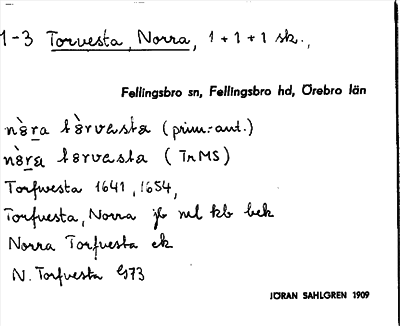 1-3 Torvesta, Norra, 1 + 1 + 1 sk.,
Fellingsbro sn, Fellingsbro hd, Örebro län
nȯ̀ra tȯ̀rvasta (prim.-ant.)
nȯ̀ra torvasta (TnMS)
Torfwesta 1641, 1654,
Torfvesta, Norra jb ml kb bek
Norra Torfvesta ek
N. Torfvesta G73
JÖRAN SAHLGREN 1909